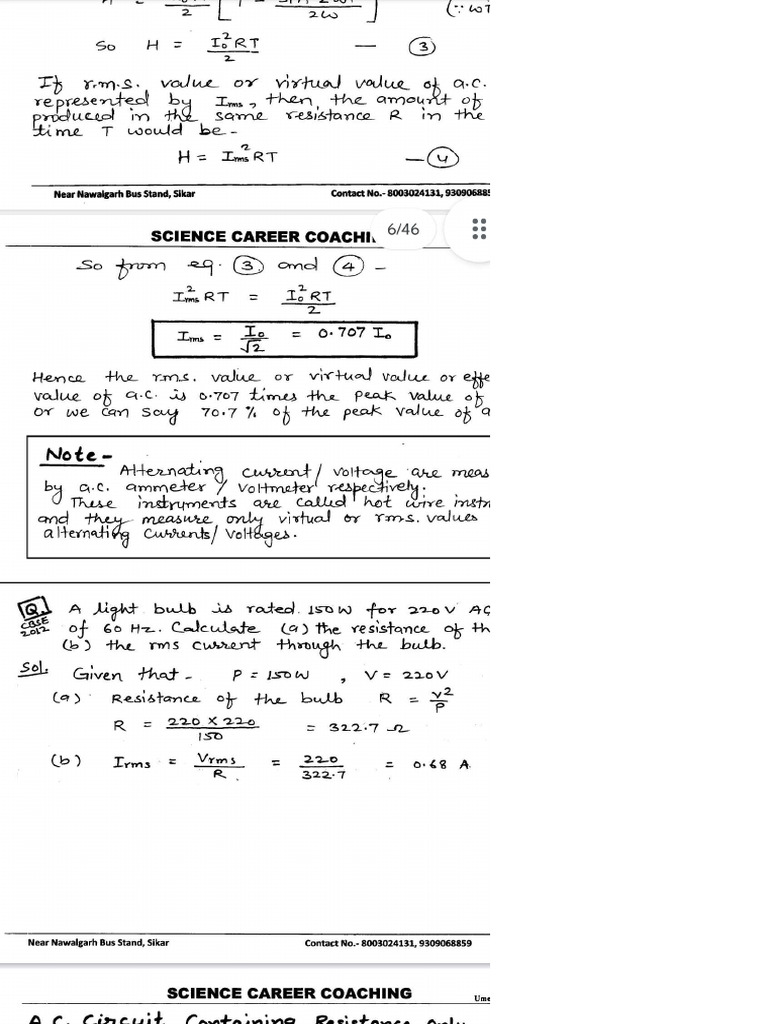 So H = I₀²RT/2 — (3)
If r.m.s. value or virtual value of a.c.
represented by Irms, then, the amount of
produced in the same resistance R in the
time T would be -
H = I²rms RT — (4)
Near Nawalgarh Bus Stand, Sikar Contact No.- 8003024131, 930906885
SCIENCE CAREER COACHI
6/46
So from eq. (3) and (4) -
I²rms RT = I₀²RT/2
Irms = I₀/√2 = 0.707 I₀
Hence the r.m.s. value or virtual value or effe
value of a.c. is 0.707 times the peak value of
or we can say 70.7% of the peak value of a
Note -
Alternating current/ voltage are meas
by a.c. ammeter / voltmeter respectively.
These instryments are called hot wire instr
and they measure only virtual or rms. values
alternating currents/ voltages.
Q. A light bulb is rated 150W for 220V AC
CBSE 2012
of 60 Hz. Calculate (a) the resistance of th
(b) the rms current through the bulb.
Sol. Given that - P = 150W , V = 220V
(a) Resistance of the bulb R = V²/P
R = 220 X 220/150 = 322.7 Ω
(b) Irms = Vrms/R = 220/322.7 = 0.68 A
Near Nawalgarh Bus Stand, Sikar Contact No.- 8003024131, 9309068859
SCIENCE CAREER COACHING
Ume
A.C. Circuit Containing Resistance Only